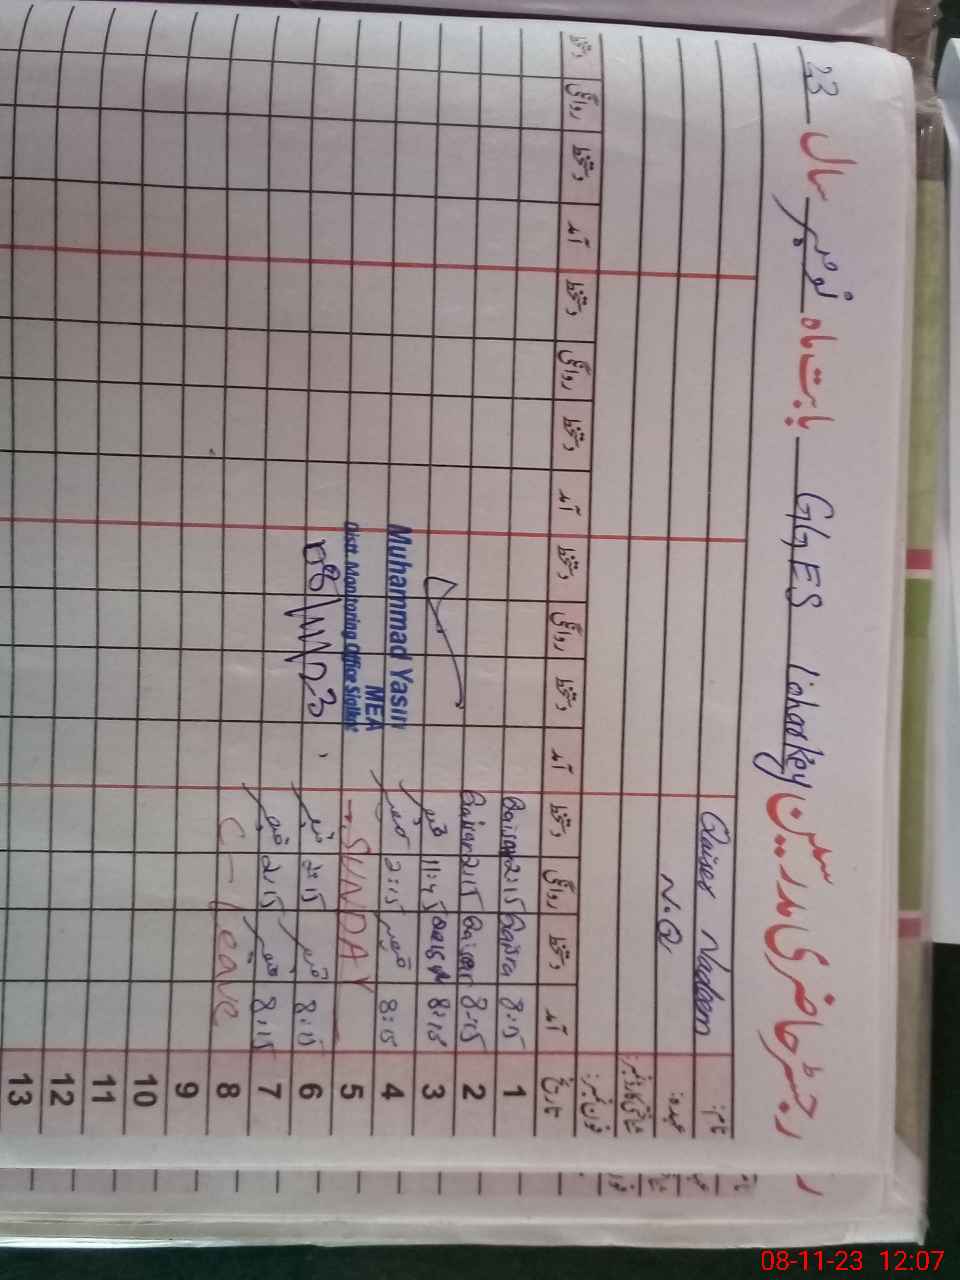 رجسٹر حاضری مدرسین GGES Liharkey بابت ماہ نومبر سال 23
نام: Qaiser Nadeem
عہدہ: N.Q
شناختی کارڈ نمبر:
فون نمبر:
تاریخ آمد دستخط روانگی دستخط آمد دستخط روانگی دستخط آمد دستخط روانگی دستخط آمد دستخط روانگی دستخط
1 8:15 Qaisra 2:15 Qaisar
2 8:15 Qaisar 2:15 Qaisar
3 8:15 11:45 قیصر
4 8:15 قیصر 2:15 قیصر
5 SUNDAY
6 8:15 قیصر 2:15 قیصر
7 8:15 قیصر 2:15 قیصر
8 C-Leave
9
10
11
12
13
Muhammad Yasin
MEA
Distt. Monitoring Office Sialkot
08-11-23 12:07